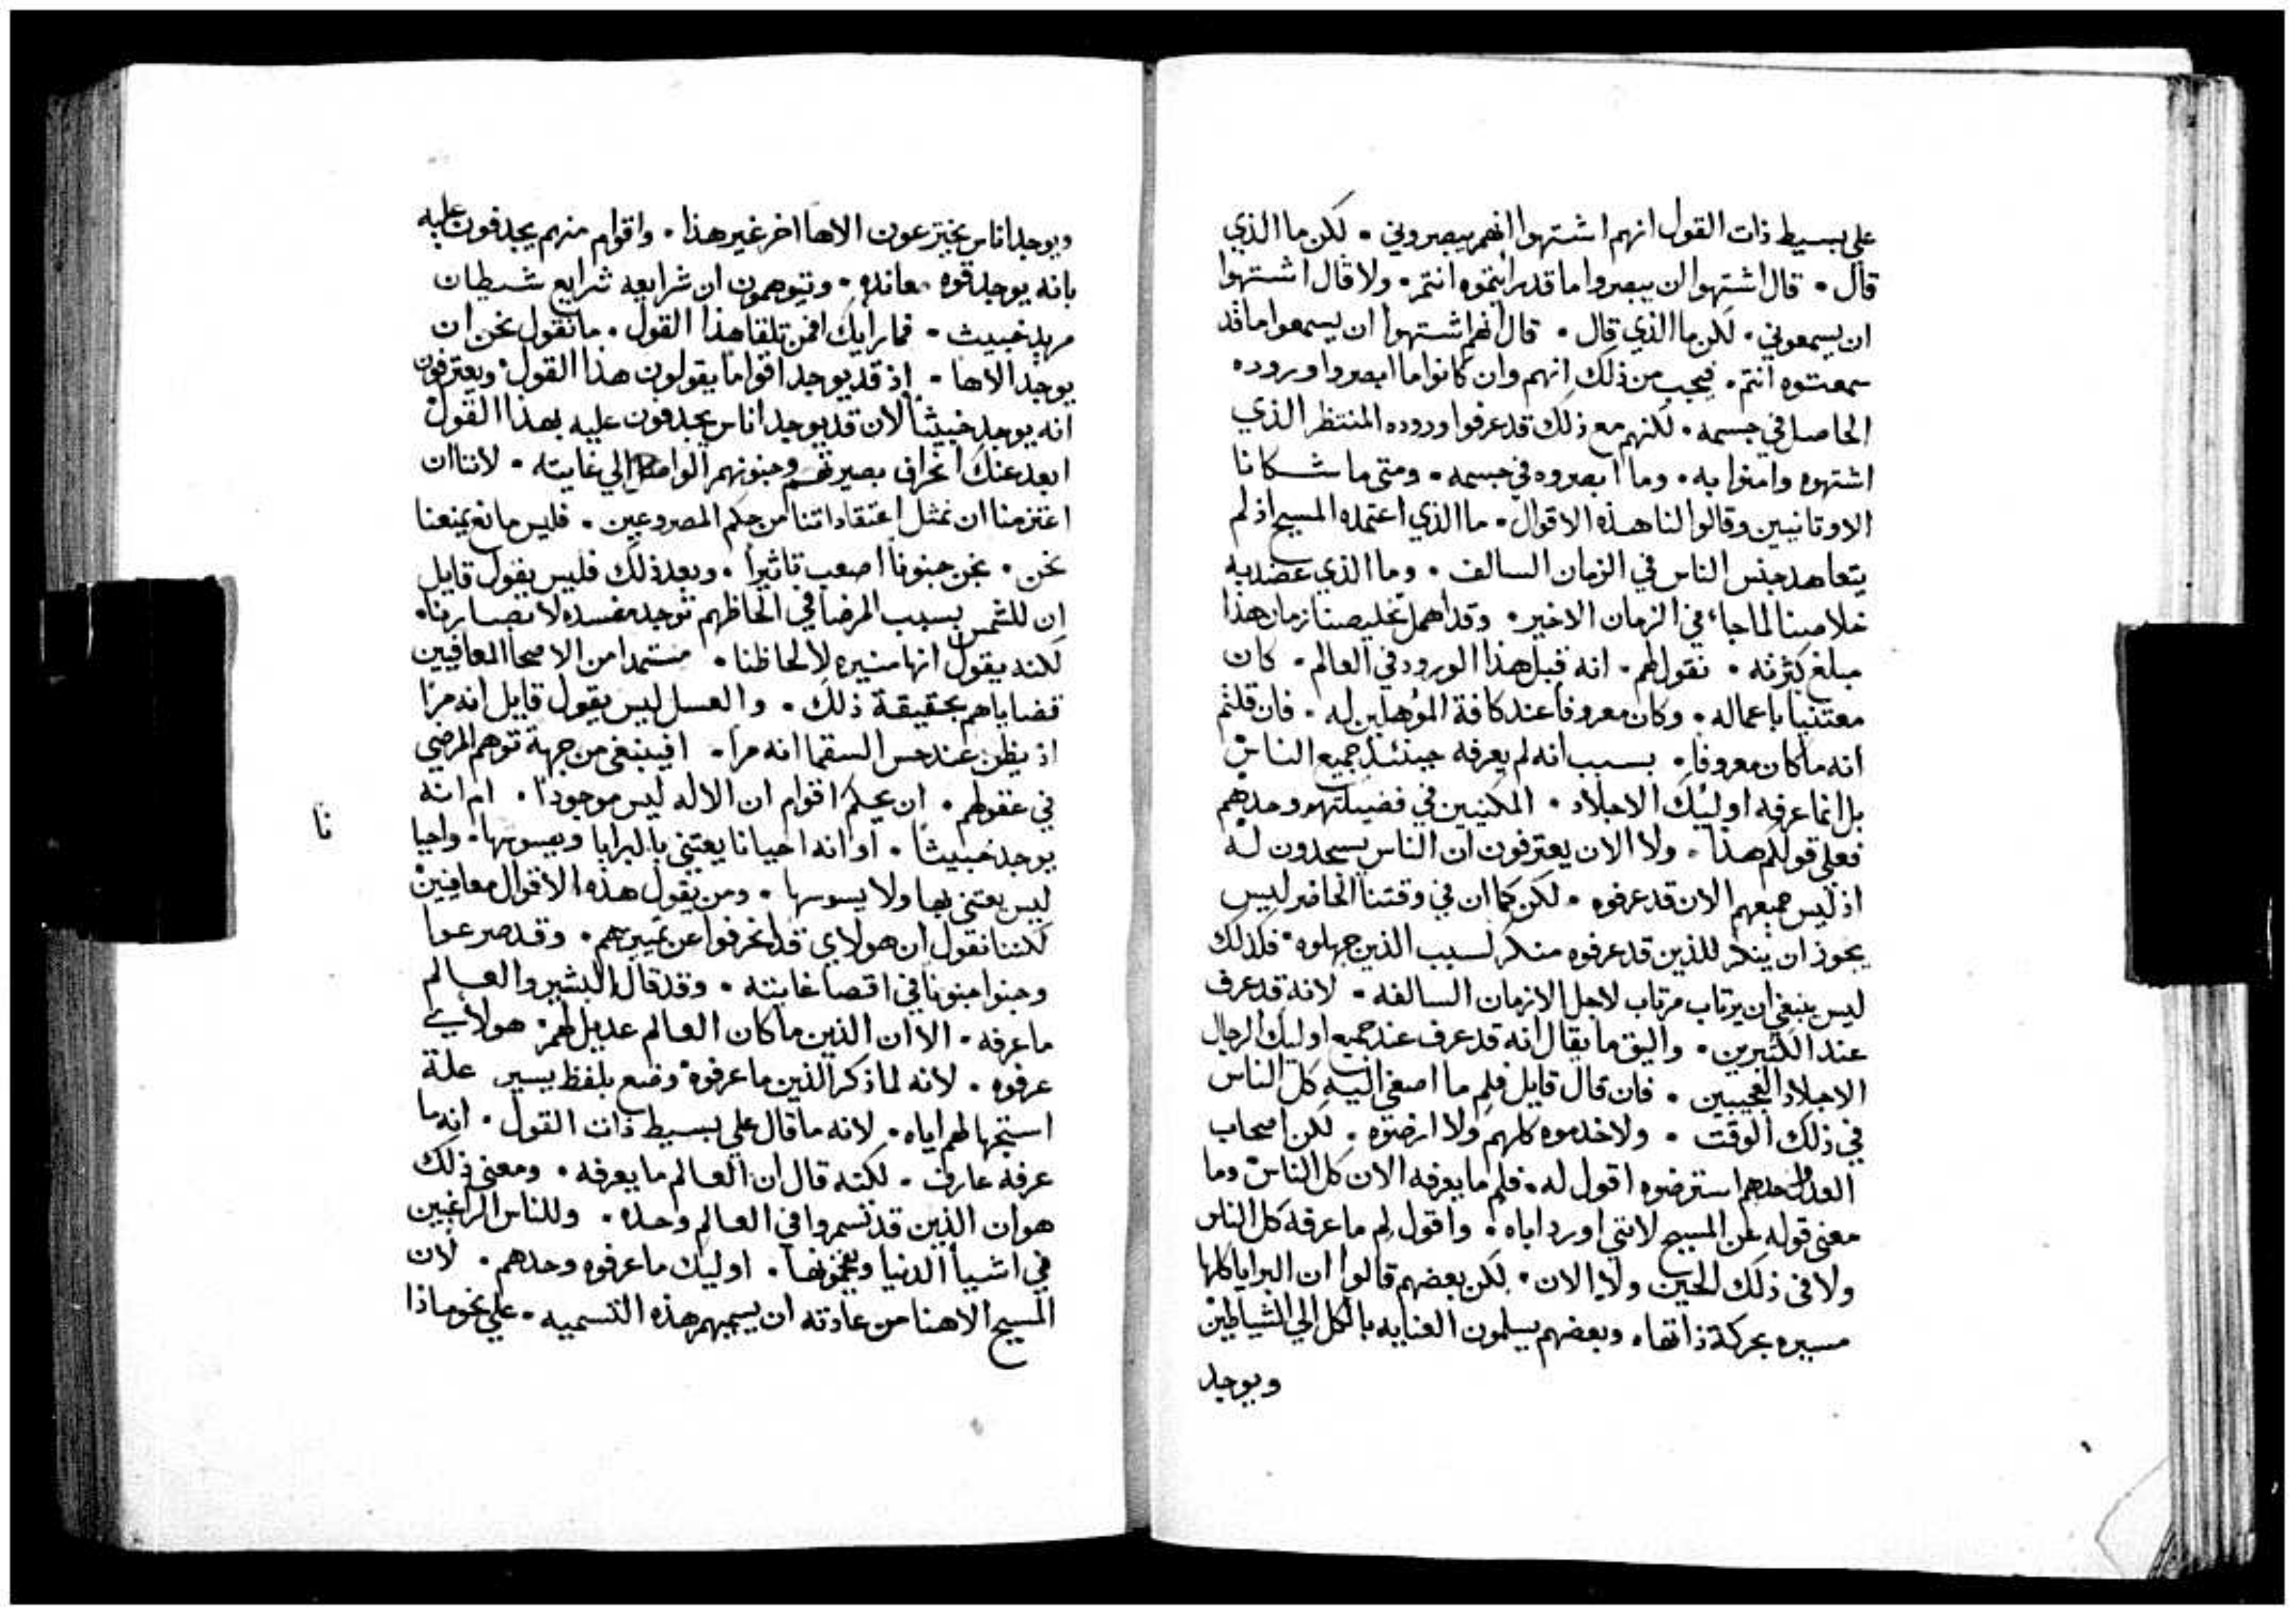 علي بسيط ذات القول انهم اشتهوا انهم يبصروني • لكن ما الذي
قال • قال اشتهوا ان يبصروا ما قد رايتموه انتم • ولا قال اشتهوا
ان يسمعوني • لكن ما الذي قال • قال انهم اشتهوا ان يسمعوا ما قد
سمعتوه انتم • فيجب من ذلك انهم وان كانوا ما ابصروا وروده
الحاصل في جسمه • لكنهم مع ذلك قد عرفوا وروده المنتظر الذي
اشتهوه وامنوا به • وما ابصروه في جسمه • ومتي ما شكانا
الاوثانيين وقالوا لنا هذه الاقوال • ما الذي اعتمده المسيح اذ لم
يتعاهد جنس الناس في الزمان السالف • وما الذي عضد به
خلاصنا لما جاء في الزمان الاخير • وقد اهمل تخليصنا زمان هذا
مبلغ كثرته • نقول لهم • انه قبل هذا الورود في العالم • كان
معتنيا باعماله • وكان معروفا عند كافة المؤهلين له • فان قلتم
انه ما كان معروفا • بسبب انه لم يعرفه حينئذ جميع الناس
بل انما عرفه اوليك الاجلاد • المكنيين في فضيلتهم وحدهم
فعلي قولكم هذا • ولا الان يعترفون ان الناس يسجدون له
اذ ليس جميعهم الان قد عرفوه • لكن كما ان في وقتنا الحاضر ليس
يجوز ان ينكر للذين قد عرفوه منكر لسبب الذين جهلوه • فكذلك
ليس ينبغي ان يرتاب مرتاب لاجل الازمان السالفه • لانه قد عرف
عند الكثيرين • واليق ما يقال انه قد عرف عند جميع اوليك الرجال
الاجلاد العجيبين • فان قال قايل فلم ما اصغي اليه كل الناس
في ذلك الوقت • ولا خدموه كلهم ولا ارضوه • لكن اصحاب
العدل وحدهم استرضوه اقول له • فلم ما يعرفه الان كل الناس وما
معني قوله عن المسيح لانني اورد اباه • واقول لم ما عرفه كل الناس
ولا في ذلك الحين ولا الان • لكن بعضهم قالوا ان البرايا كلها
مسيره بحركة ذاتها • وبعضهم يسلمون العنايه بالكل الي الشياطين
ويوجد
ويوجد اناس يخترعون الاها اخر غير هذا • واقوام منهم يجدفون عليه
بانه يوجد قوه معانده • وتيوهمون ان شرايعه شرايع شيطان
مريد خبيث • فما رايك افمن تلقا هذا القول • ما نقول نحن ان
يوجد الاها • اذ قد يوجد اقواما يقولون هذا القول • ويعترفون
انه يوجد خبيثا لان قد يوجد اناس يجدفون عليه بهذا القول
ابعد عنك انحراف بصيرتهم وجنونهم الواصل الي غايته • لاننا ان
اعتزمنا ان نمثل اعتقاداتنا من حكم المصروعين • فليس مانع يمنعنا
نحن • نجن جنونا اصعب تاثيرا • وبعد ذلك فليس يقول قايل
ان للشمس بسبب المرضا في الحاظهم توجد مفسده لابصارنا •
لكنه يقول انها منيره لالحاظنا • مستمدا من الاصحا المعافيين
قضاياهم بحقيقة ذلك • والعسل ليس يقول قايل انه مرا
اذ يظن عند حس السقما انه مرا • افينبغي من جهة توهم المرضي
في عقولهم • ان يحكم اقوام ان الاله ليس موجودا • ام انه
يوجد خبيثا • او انه احيانا يعتني بالبرايا ويسوسها • واحيا
نا
ليس يعتني بها ولا يسوسها • ومن يقول هذه الاقوال معافيين
لكننا نقول ان هولاي قد انحرفوا عن تمييزهم • وقد صرعوا
وجنوا جنونا في اقصا غايته • وقد قال البشير والعالم
ما عرفه • الا ان الذين ما كان العالم عديل لهم • هولاي
عرفوه • لانه لما ذكر الذين ما عرفوه وضع بلفظ يسير علة
استجهالهم اياه • لانه ما قال علي بسيط ذات القول • انه ما
عرفه عارف • لكنه قال ان العالم ما يعرفه • ومعني ذلك
هو ان الذين قد تسمروا في العالم وحده • وللناس الراغبين
في اشيا الدنيا اوليك ما عرفوه وحدهم • لان
المسيح الاهنا من عادته ان يسميهم هذه التسميه • علي نحو ماذا